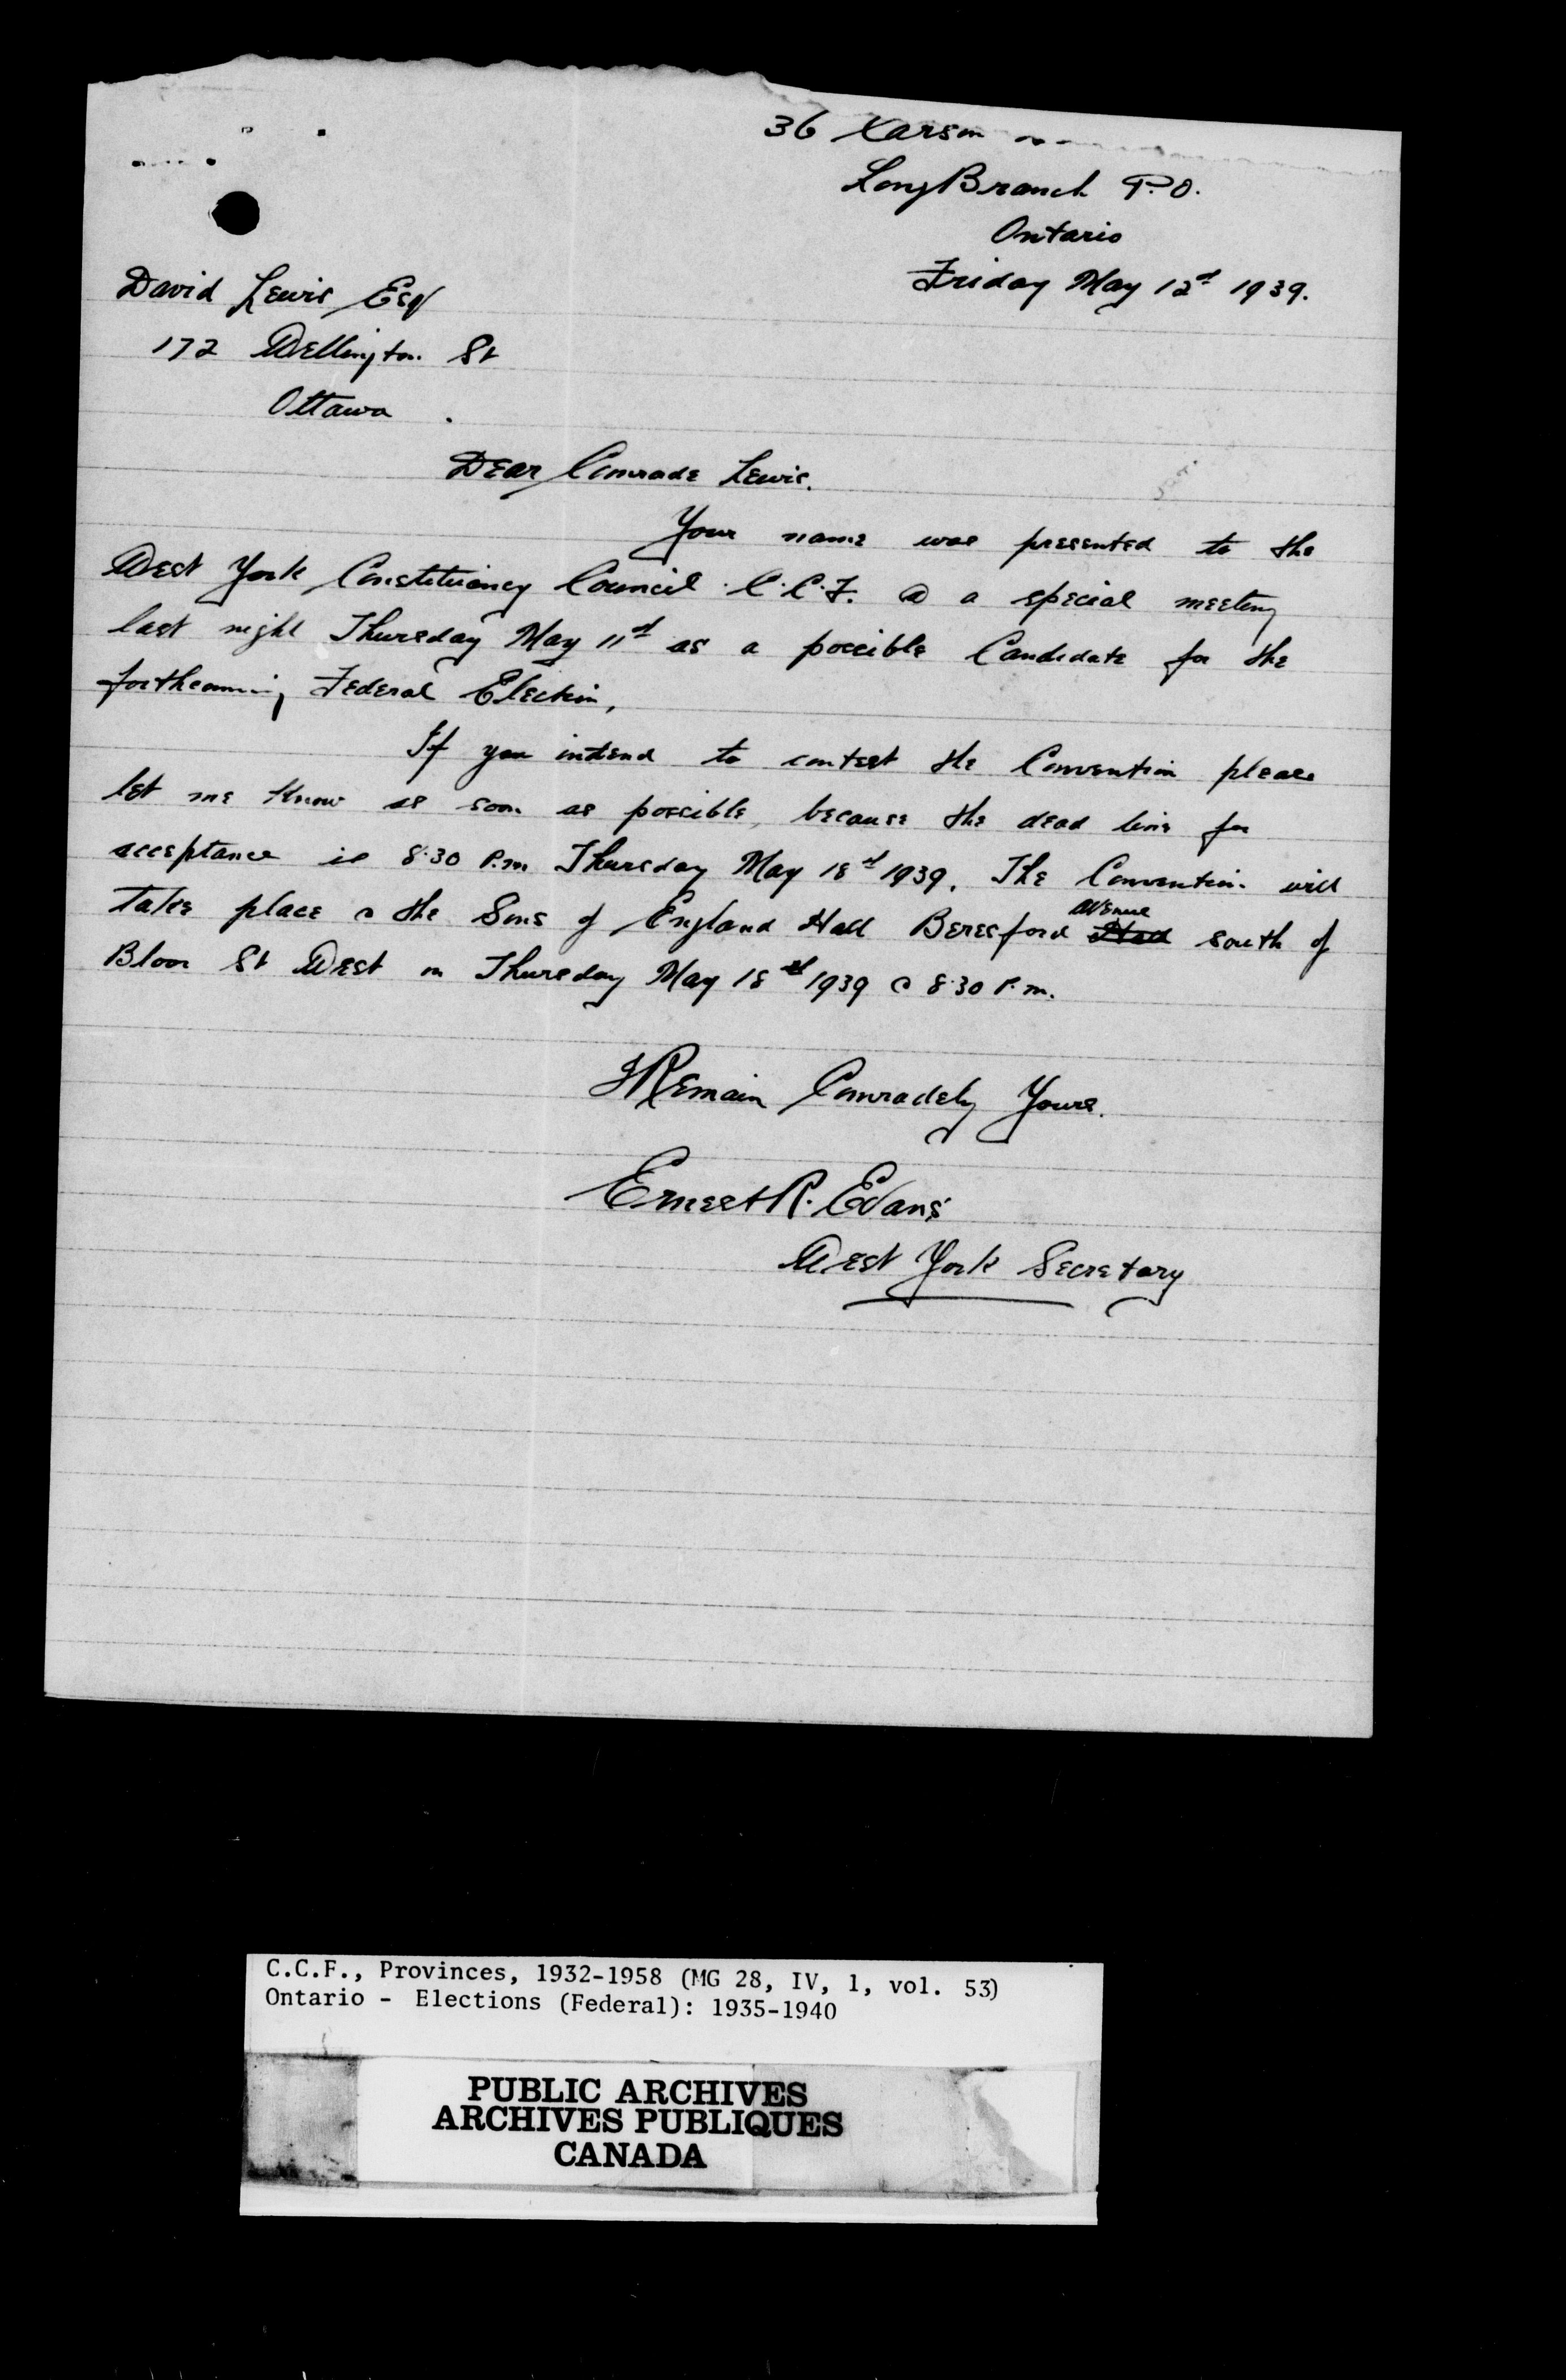 36
Long Branch P.O.
Ontario
Friday May 12d 1939.
David Lewis Esq
172 Wellington St
Ottawa.
Dear Comrade Lewis.
Your name was presented to the
West York Constituency Council C.C.F. @ a special meeting
last night Thursday May 11d as a possible Candidate for the
forthcoming Federal Election,
If you intend to contest the Convention please
let me know as soon as possible, because the dead line for
acceptance is 8.30 P.m. Thursday May 18d 1939. The Convention will
take place @ the Sons of England Hall Beresford avenue south of
Bloor St West on Thursday May 18d 1939 @ 8.30 P.m.
I Remain Comradely Yours.
Ernest R. Evans
West York Secretary
C.C.F., Provinces, 1932-1958 (MG 28, IV, 1, vol. 53)
Ontario - Elections (Federal): 1935-1940
PUBLIC ARCHIVES
ARCHIVES PUBLIQUES
CANADA